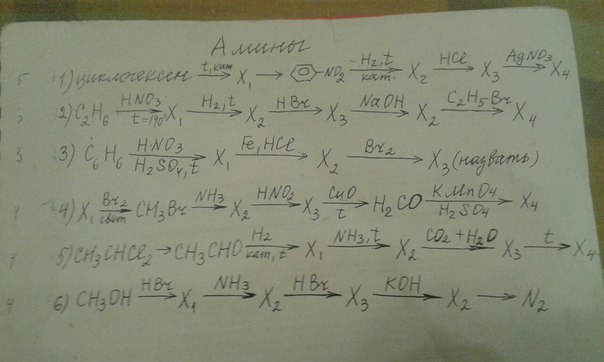 Амины
5 1) циклогексен t, кат. → X₁ → ⌬–NO₂ –H₂, t кат. → X₂ HCl → X₃ AgNO₃ → X₄
2) C₂H₆ HNO₃ t=140° → X₁ H₂, t → X₂ HBr → X₃ NaOH → X₂ C₂H₅Br → X₄
3 3) C₆H₆ HNO₃ H₂SO₄, t → X₁ Fe, HCl → X₂ Br₂ → X₃ (назвать)
4 4) X₁ Br₂ свет → CH₃Br NH₃ → X₂ HNO₂ → X₃ CuO t → H₂CO KMnO₄ H₂SO₄ → X₄
4 5) CH₃CHCl₂ → CH₃CHO H₂ кат, t → X₁ NH₃, t → X₂ CO₂ + H₂O → X₃ t → X₄
4 6) CH₃OH HBr → X₁ NH₃ → X₂ HBr → X₃ KOH → X₂ → N₂